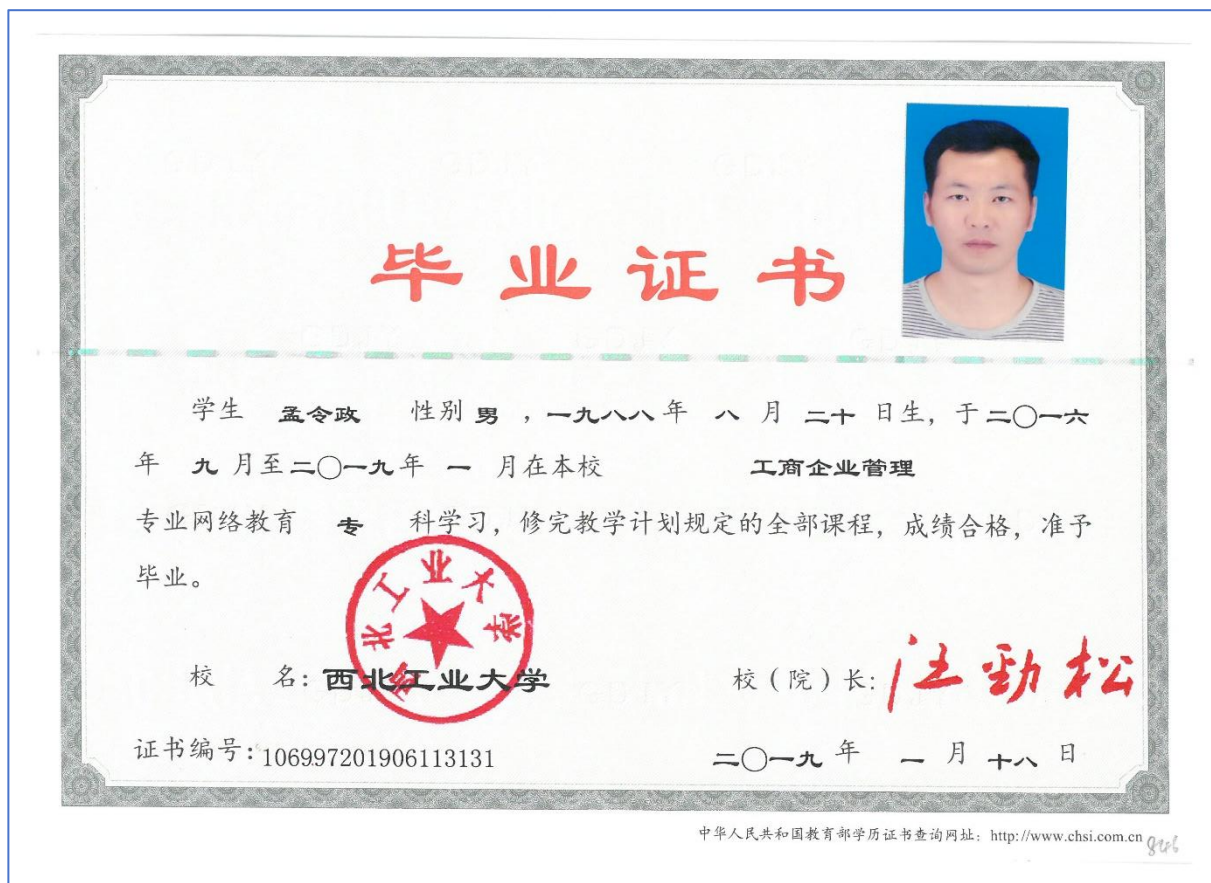 毕业证书
学生 孟令政 性别 男 ，一九八八年 八 月 二十 日生，于二〇一六
年 九 月至二〇一九年 一 月在本校 工商企业管理
专业网络教育 专 科学习，修完教学计划规定的全部课程，成绩合格，准予
毕业。
西北工业大学
校 名：西北工业大学 校（院）长：汪劲松
证书编号：106997201906113131 二〇一九 年 一 月 十八 日
中华人民共和国教育部学历证书查询网址：http://www.chsi.com.cn